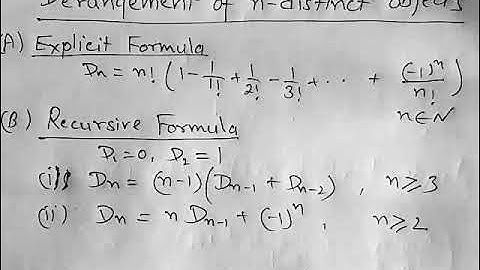 Derangement of n-distinct objects
(A) Explicit Formula
Dn = n! (1 - 1/1! + 1/2! - 1/3! + ... + (-1)^n/n!)
n∈N
(B) Recursive Formula
D₁=0, D₂=1
(i) Dn = (n-1)(Dn-1 + Dn-2) , n≥3
(ii) Dn = n Dn-1 + (-1)^n , n≥2